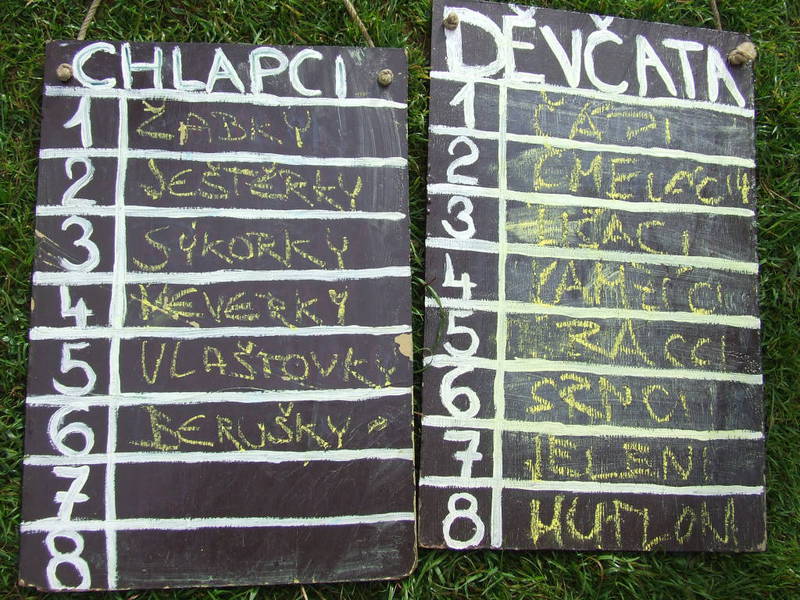 CHLAPCI
1 ŽABKY
2 JEŠTĚRKY
3 SÝKORKY
4 VEVERKY
5 VLAŠŤOVKY
6 BERUŠKY
7
8
DĚVČATA
1 ČÁPI
2 ČMELÁCI
3
4
5
6 SRNCI
7 JELENI
8